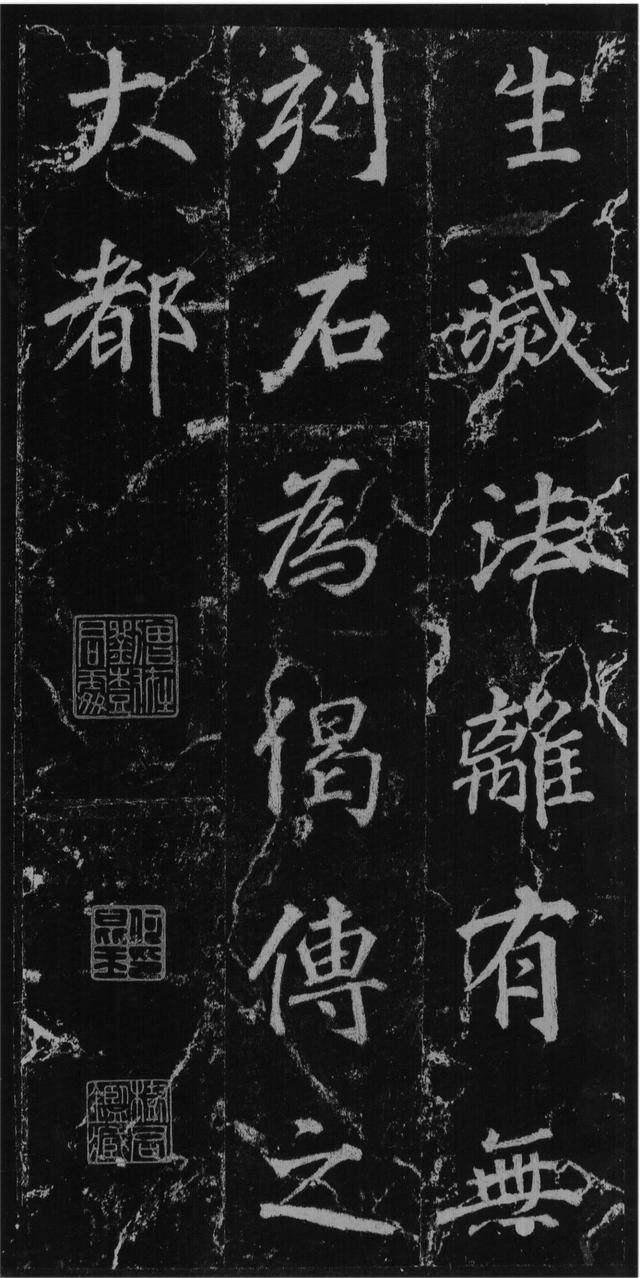 生滅法離有無
刻石為偈傳之
大都